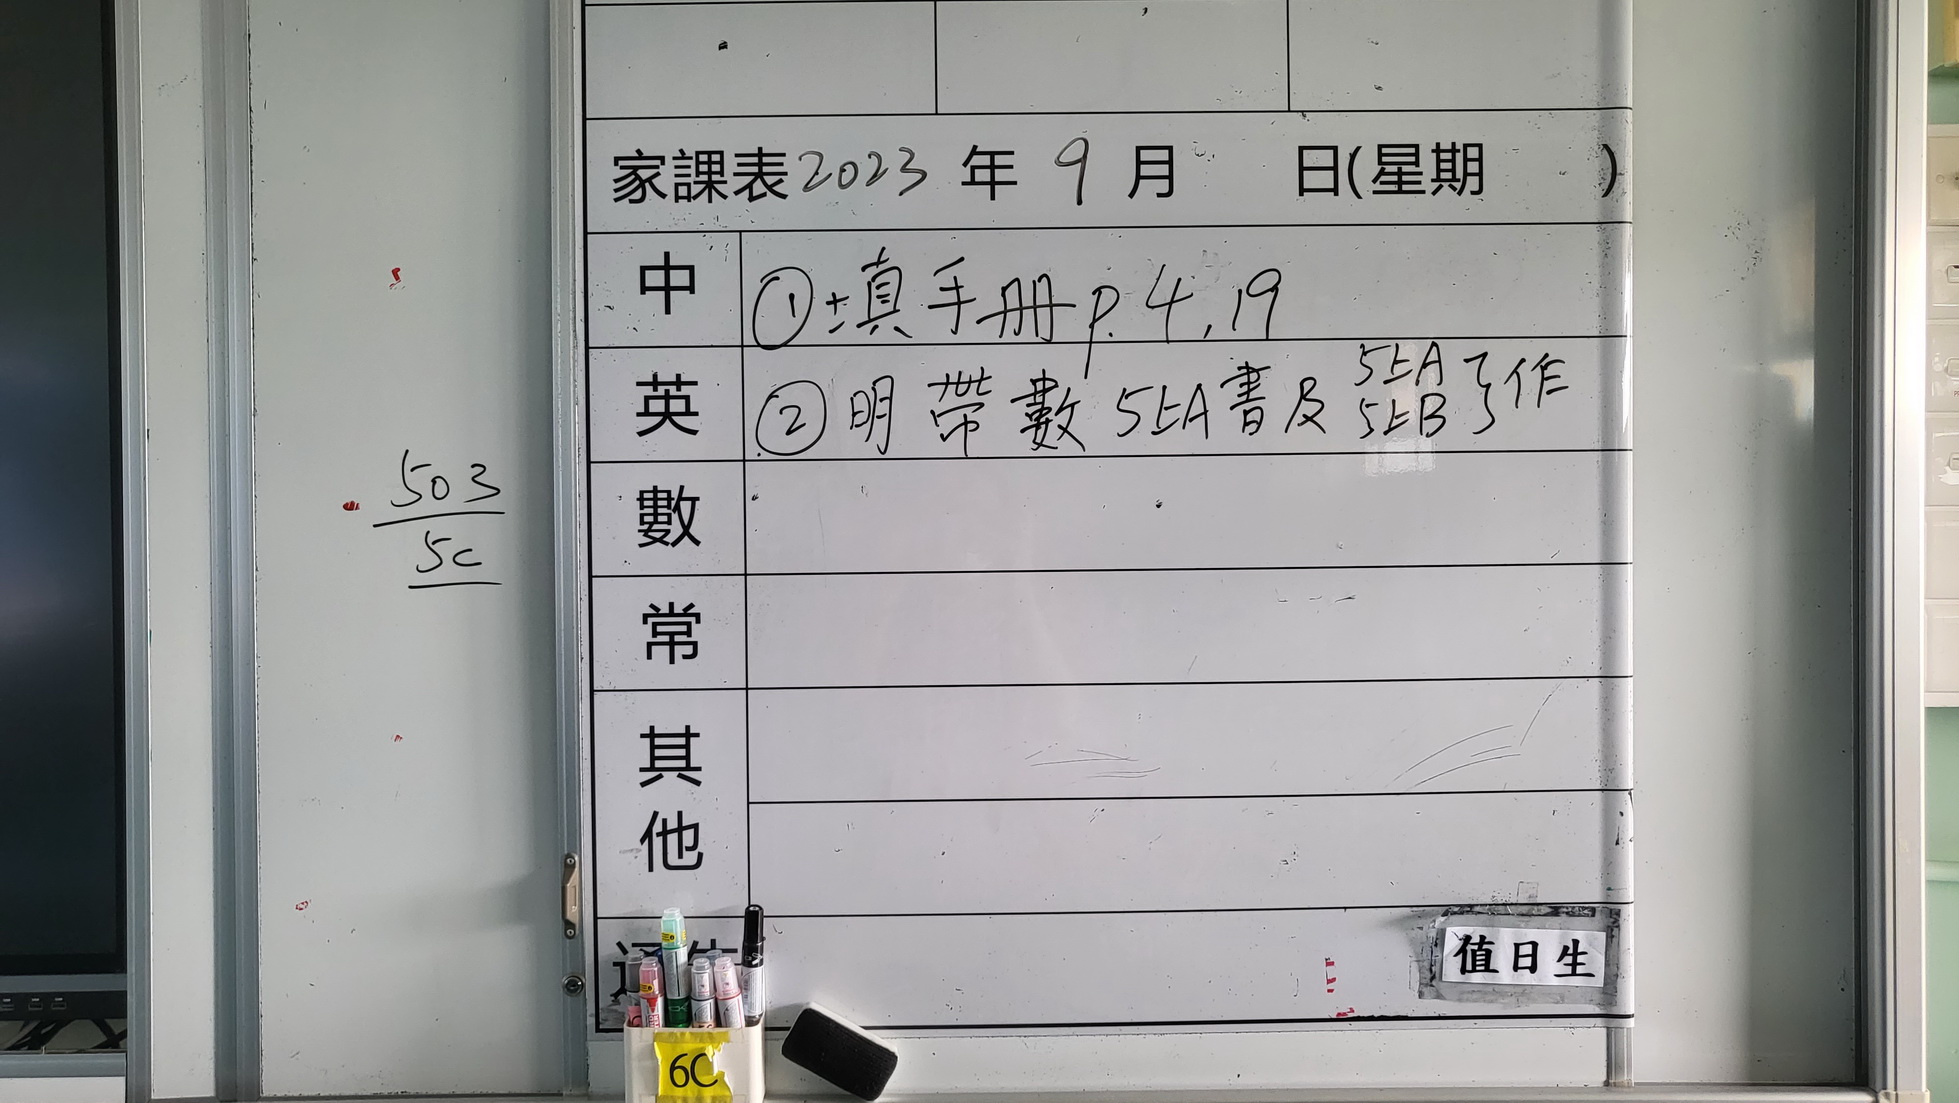 家課表2023 年 9 月 日(星期 )
中 ①填手冊p.4,19
英 ②明帶數5上A書及5上A 5上B}作
數
常
其他
值日生
503
5C
6C